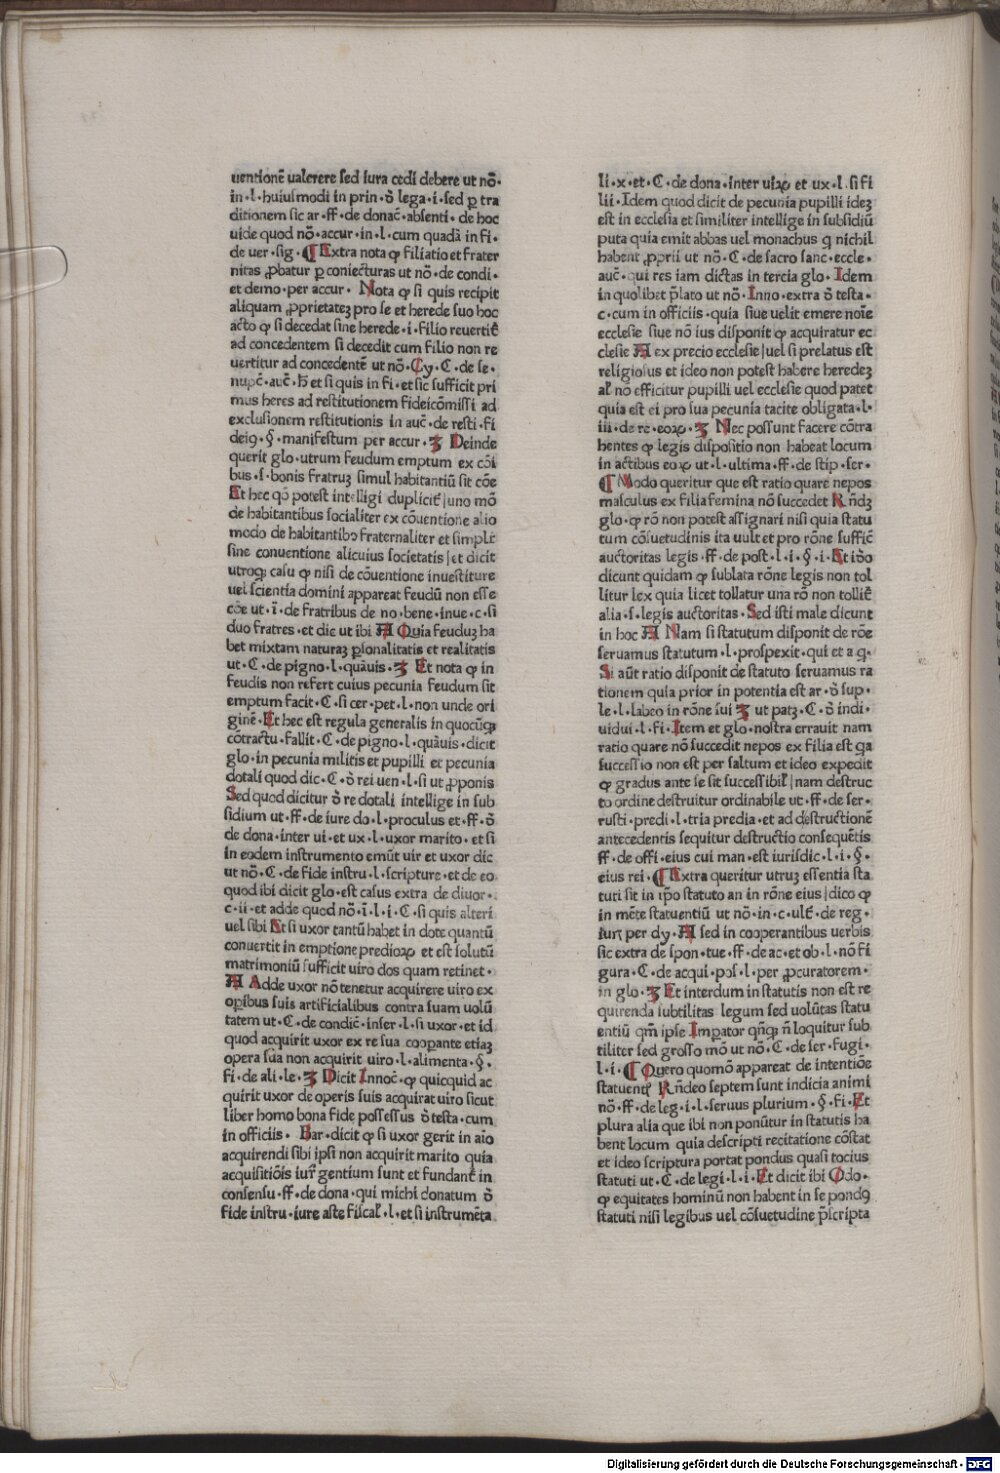 uentionē ualerere sed iura cedi debere ut nō·
in·l·huiusmodi in prin·ō lega·i·sed ꝑ tra
ditionem sic ar·ff·de donac̄·absenti·de hoc
uide quod nō·accur·in·l·cum quadā in fi·
de uer·sig·¶ Extra nota ꝙ filiatio et frater
nitas ꝓbatur ꝑ coniecturas ut nō·de condi·
et demo·per accur· Nota ꝙ si quis recipit
aliquam ꝓprietateꝫ pro se et herede suo hoc
acto ꝙ si decedat sine herede·i·filio reuertit̄
ad concedentem si decedit cum filio non re
uertitur ad concedentē ut nō·Cy·C·de se·
nupc̄·auc̄·h̄ et si quis in fi·et sic sufficit pri
mus heres ad restitutionem fideicōmissi ad
exclusionem restitutionis in auc̄·de resti·fi
deiꝯ·§·manifestum per accur·ꝫ Deinde
querit glo·utrum feudum emptum ex cōi
bus·s·bonis fratruꝫ simul habitantiū sit cōe
Et hec qō potest intelligi duplicit̄|uno mō
de habitantibus socialiter ex cōuentione alio
modo de habitantibꝯ fraternaliter et simplr̄
sine conuentione alicuius societatis|et dicit
utroqꝫ casu ꝙ nisi de cōuentione inuestiture
uel scientia domini appareat feudū non esse
cōe ut·ī·de fratribus de no·bene·inue·c·si
duo fratres·et dic ut ibi A Quia feuduꝫ ha
bet mixtam naturaꝫ ꝑsonalitatis et realitatis
ut·C·de pigno·l·quāuis·ꝫ Et nota ꝙ in
feudis non refert cuius pecunia feudum sit
emptum facit·C·si cer·pet·l·non unde ori
ginē·Et hec est regula generalis in quocūqꝫ
cōtractu·fallit·C·de pigno·l·quāuis·dicit
glo·in pecunia militis et pupilli et pecunia
dotali quod dic·C·ō rei uen·l·si ut ꝓponis
Sed quod dicitur ō re dotali intellige in sub
sidium ut·ff·de iure do·l·proculus et·ff·ō
de dona·inter ui·et ux·l·uxor marito·et si
in eodem instrumento emūt uir et uxor dic
ut nō·C·de fide instru·l·scripture·et de eo
quod ibi dicit glo·est casus extra de diuor·
c·ii·et adde quod nō·ī·l·i·C·si quis alteri
uel sibi Et si uxor tantū habet in dote quantū
conuertit in emptione predioꝝ et est solutū
matrimoniū sufficit uiro dos quam retinet·
A Adde uxor nō tenetur acquirere uiro ex
oꝑibus suis artificialibus contra suam uolū
tatem ut·C·de condic̄·inser·l·si uxor·et id
quod acquirit uxor ex re sua cooꝑante etiaꝫ
opera sua non acquirit uiro·l·alimenta·§·
fi·de ali·le·ꝫ Dicit Innoc̄·ꝙ quicquid ac
quirit uxor de operis suis acquirat uiro sicut
liber homo bona fide possessus ō testa·cum
in officiis· Bar·dicit ꝙ si uxor gerit in aīo
acquirendi sibi ipsi non acquirit marito quia
acquisitiōis iur̄ gentium sunt et fundant̄ in
consensu·ff·de dona·qui michi donatum ō
fide instru·iure aste fiscal̄·l·et si instrumēta
li·x·et·C·de dona·inter uiꝝ et ux·l·si fi
lii·Idem quod dicit de pecunia pupilli ideꝫ
est in ecclesia et similiter intellige in subsidiū
puta quia emit abbas uel monachus q̄ nichil
habent ꝓprii ut nō·C·de sacro sanc·eccle·
auc̄·qui res iam dictas in tercia glo·Idem
in quolibet p̄lato ut nō·Inno·extra ō testa·
c·cum in officiis·quia siue uelit emere noīe
ecclesie siue nō ius disponit ꝙ acquiratur ec
clesie A ex precio ecclesie|uel si prelatus est
religiosus et ideo non potest habere heredeꝫ
al̄ no efficitur pupilli uel ecclesie quod patet
quia est ei pro sua pecunia tacite obligata·l·
iii·de re·eoꝝ·ꝫ Nec possunt facere cōtra
hentes ꝙ legis dispositio non habeat locum
in actibus eoꝝ ut·l·ultima·ff·de stip·ser·
¶ Modo queritur que est ratio quare nepos
masculus ex filia femina nō succedet Rn̄dꝫ
glo·ꝙ rō non potest assignari nisi quia statu
tum cōsuetudinis ita uult et pro rōne suffic̄
auctoritas legis·ff·de post·l·i·§·i·Et iō̄o
dicunt quidam ꝙ sublata rōne legis non tol
litur lex quia licet tollatur una rō non tollit̄
alia·s·legis auctoritas·Sed isti male dicunt
in hoc A Nam si statutum disponit de rōe
seruamus statutum·l·prospexit·qui et a q·
Si aūt ratio disponit de statuto seruamus ra
tionem quia prior in potentia est ar·ō sup·
le·l·labeo in rōne sui ꝫ ut patꝫ·C·ō indi·
uidui·l·fi·Item et glo·nostra errauit nam
ratio quare nō succedit nepos ex filia est q̄a
successio non est per saltum et ideo expedit
ꝙ gradus ante se sit successibil̄|nam destruc
to ordine destruitur ordinabile ut·ff·de ser·
rusti·predi·l·tria predia·et ad destructionē
antecedentis sequitur destructio consequētis
ff·de offi·eius cui man·est iurisdic·l·i·§·
eius rei·¶ Extra queritur utruꝫ essentia sta
tuti sit in ip̄o statuto an in rōne eius|dico ꝙ
in mēte statuentiū ut nō·in·c·ult̄·de reg·
iur̄ per dy·A sed in cooperantibus uerbis
sic extra de spon·tue·ff·de ac·et ob·l·nō fi
gura·C·de acqui·pos·l·per ꝓcuratorem·
in glo·ꝫ Et interdum in statutis non est re
quirenda subtilitas legum sed uolūtas statu
entiū qm̄ ipse Imꝑator qn̄qꝫ n̄ loquitur sub
tiliter sed grosso mō ut nō·C·de ser·fugi·
l·i·¶ Quero quomō appareat de intentiōe
statuentꝭ Rn̄deo septem sunt indicia animi
nō·ff·de leg·i·l·seruus plurium·§·fi·Et
plura alia que ibi non ponūtur in statutis ha
bent locum quia descripti recitatione cōstat
et ideo scriptura portat pondus quasi tocius
statuti ut·C·de legi·l·i·Et dicit ibi Odo·
ꝙ equitates hominū non habent in se pondꝯ
statuti nisi legibus uel cōsuetudine p̄scripta
Digitalisierung gefördert durch die Deutsche Forschungsgemeinschaft · DFG